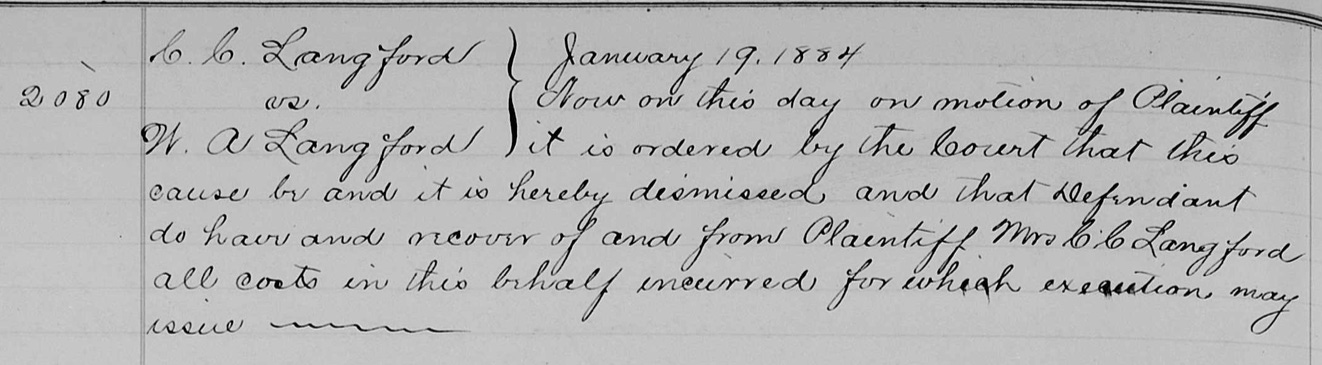 C. C. Langford } January 19. 1884
2080 vs. Now on this day on motion of Plaintiff
W. A Langford it is ordered by the Court that this
cause be and it is hereby dismissed and that Defendant
do have and recover of and from Plaintiff Mrs C. C Langford
all costs in this behalf incurred for which execution may
issue